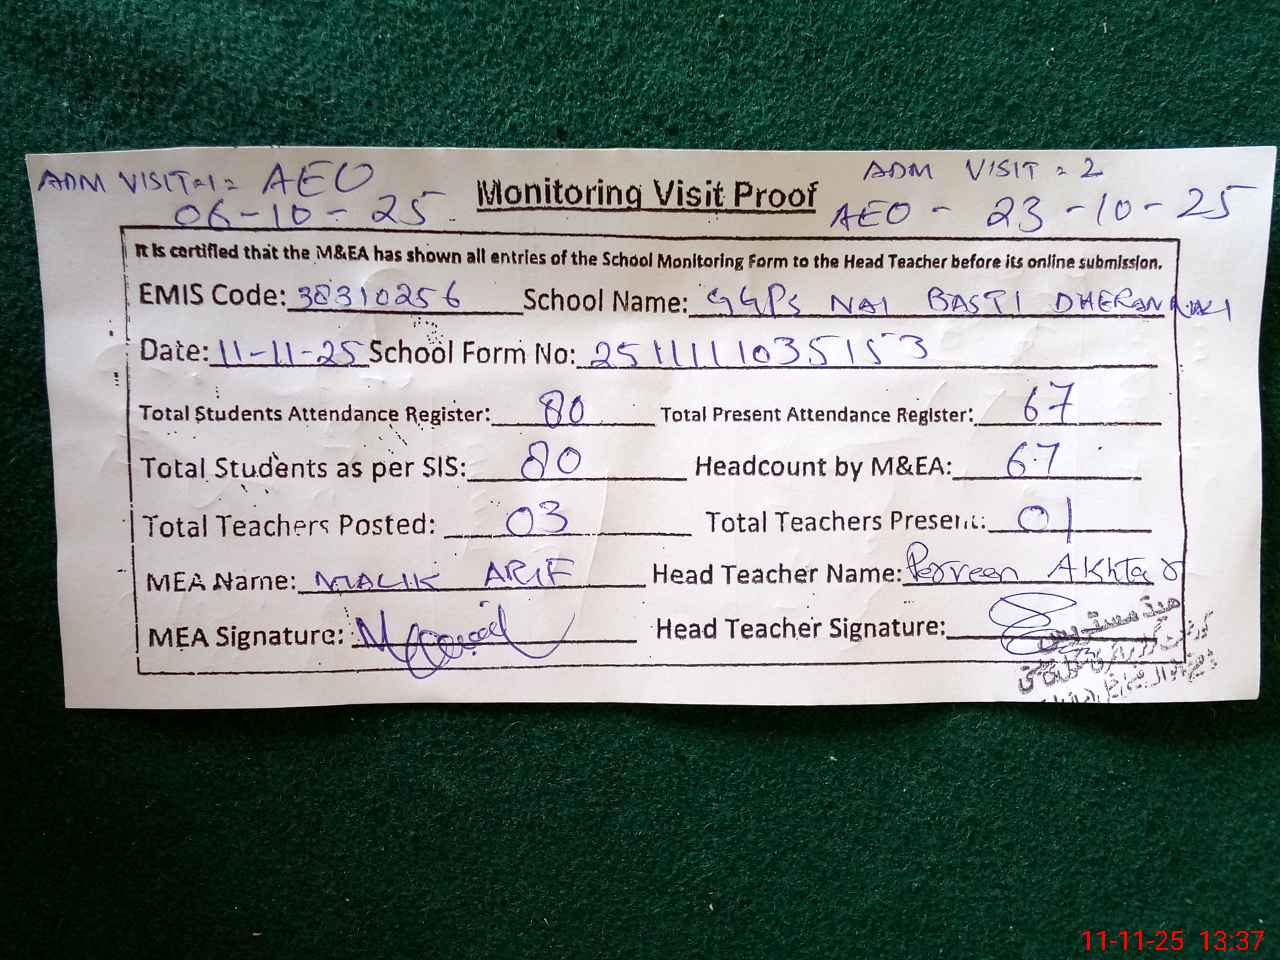 ADM VISIT-1= AEO
06-10-25
Monitoring Visit Proof
ADM VISIT = 2
AEO - 23-10-25
It is certified that the M&EA has shown all entries of the School Monitoring Form to the Head Teacher before its online submission.
EMIS Code: 38310256 School Name: GGPS NAI BASTI
Date: 11-11-25 School Form No: 251111035153
Total Students Attendance Register: 80 Total Present Attendance Register: 67
Total Students as per SIS: 80 Headcount by M&EA: 67
Total Teachers Posted: 03 Total Teachers Present: 01
MEA Name: MALIK ARIF Head Teacher Name: Perveen Akhtar
MEA Signature: Head Teacher Signature:
ہیڈ مسٹریس
11-11-25 13:37